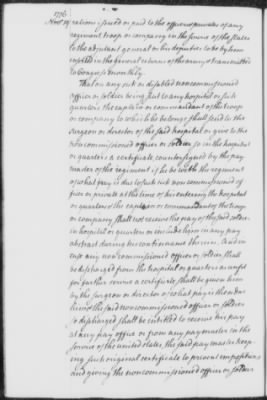 1776
Nov. 19 rations issued or paid to the officers & privates of any
regiment troop or company in the service of the states
to the adjutant general or his deputies to be by him
copied in the general returns of the army & transmitted
to Congress monthly.
That on any sick or disabled non commissioned
officer or soldier being sent to any hospital or sick
quarters the captain or commandant of the troop
or company to which he belongs shall send to the
surgeon or director of the said hospital or give to the
non commissioned officer or soldier so in the hospital
or quarters a certificate countersigned by the pay
master of the regiment if he be with the regiment
of what pay is due to such sick non commissioned of
ficer or private at the time of his entering the hospital
or quarters & the captain or commandant of the troop
or company shall not receive the pay of the said soldier
in hospital or quarters or include him in any pay
abstract during his continuance therein. And in
case any non commissioned officer or soldier shall
be discharged from the hospital or quarters as unfit
for farther service a certificate shall be given him
by the surgeon or director of what pay is then due
him & the said non commissioned officer or soldier
so discharged shall be entitled to receive his pay
at any pay office or from any pay master in the
service of the united states, the said pay master keep
ing such original certificate to prevent impositions
and giving the non commissioned officer or soldier